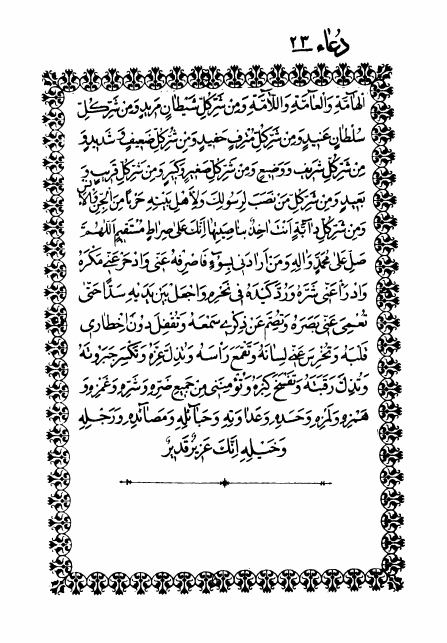 دعاء ٢٣
الهامَّةِ وَالْعامَّةِ وَاللاَّمَّةِ وَمِن شَرِّ كُلِّ شَيْطانٍ مَرِيدٍ وَمِن شَرِّ كُلِّ
سُلْطانٍ عَنِيدٍ وَمِن شَرِّ كُلِّ مُتْرَفٍ حَفِيدٍ وَمِن شَرِّ كُلِّ ضَعِيفٍ وَشَدِيدٍ وَ
مِن شَرِّ كُلِّ شَرِيفٍ وَوَضِيعٍ وَمِن شَرِّ كُلِّ صَغِيرٍ وَكَبِيرٍ وَمِن شَرِّ كُلِّ قَرِيبٍ وَ
بَعِيدٍ وَمِن شَرِّ كُلِّ مَن نَصَبَ لِرَسُولِكَ وَلِأَهْلِ بَيْتِهِ حَرْبًا مِنَ الْجِنِّ وَالْاِنْسِ
وَمِن شَرِّ كُلِّ دابَّةٍ أَنْتَ اخِذٌ بِناصِيَتِها اِنَّكَ عَلى صِراطٍ مُسْتَقِيمٍ اَللّهُمَّ
صَلِّ عَلى مُحَمَّدٍ وَالِهِ وَمَن أَرادَنِي بِسُوءٍ فَاصْرِفْهُ عَنّي وَادْحَرْ عَنّي مَكْرَهُ
وَادْرَأْ عَنّي شَرَّهُ وَرُدَّ كَيْدَهُ فِي نَحْرِهِ وَاجْعَلْ بَيْنَ يَدَيْهِ سَدًّا حَتّى
تُعْمِيَ عَنّي بَصَرَهُ وَتُصِمَّ عَن ذِكْرِي سَمْعَهُ وَتُقْفِلَ دُونَ اِخْطارِي
قَلْبَهُ وَتُخْرِسَ عَنّي لِسانَهُ وَتَقْمَعَ رَأْسَهُ وَتُذِلَّ عِزَّهُ وَتَكْسِرَ جَبَرُوتَهُ
وَتُذِلَّ رَقَبَتَهُ وَتَفْسَخَ كِبْرَهُ وَتُؤْمِنَنِي مِن جَمِيعِ ضَرِّهِ وَشَرِّهِ وَغَمْزِهِ وَ
هَمْزِهِ وَلَمْزِهِ وَحَسَدِهِ وَعَداوَتِهِ وَحَبائِلِهِ وَمَصائِدِهِ وَرَجِلِهِ
وَخَيْلِهِ اِنَّكَ عَزِيزٌ قَدِيرٌ